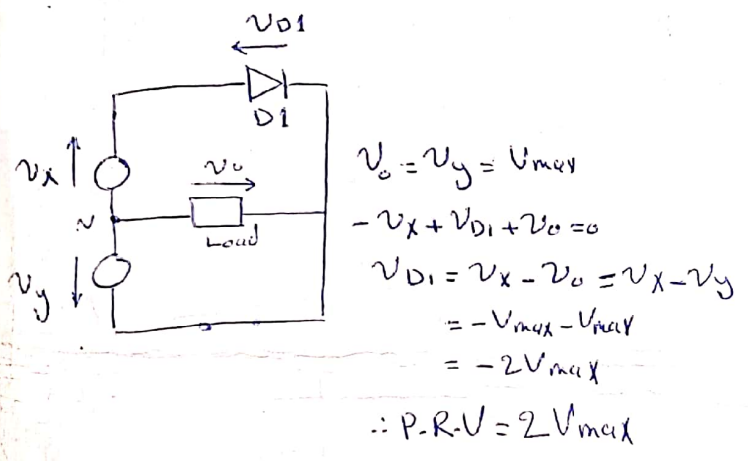 VD1
D1
Vx
Vo
N
Load
Vy
Vo = Vy = Vmax
-Vx + VD1 + Vo = 0
VD1 = Vx - Vo = Vx - Vy
= -Vmax - Vmax
= -2Vmax
∴ P.R.V = 2Vmax